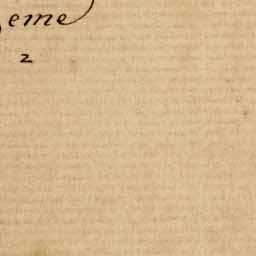 eme
2